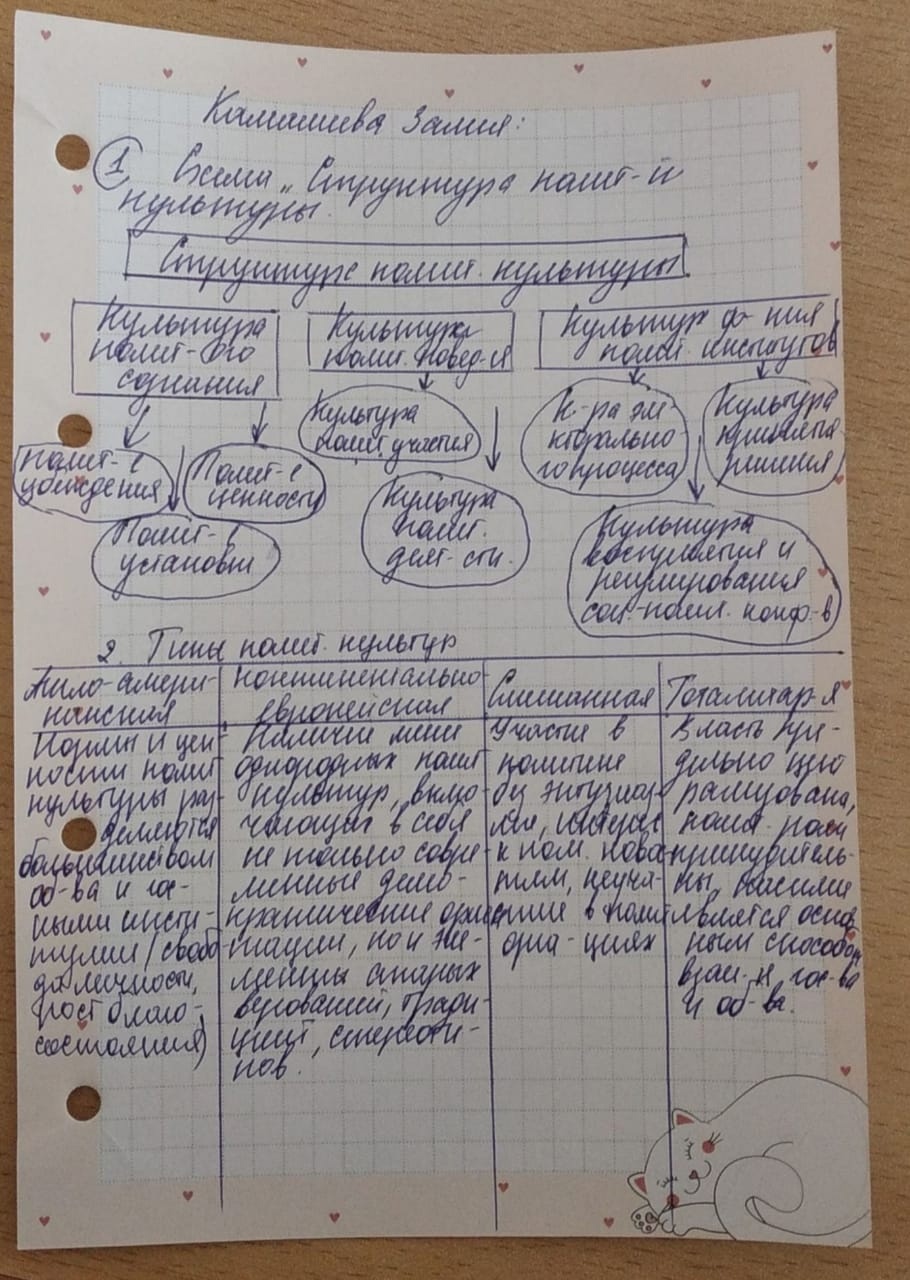 Камашева Залия:
① Схема „Структура полит-й
культуры.
Структура полит. культуры
Культура
полит-ого
сознания
Культура
полит. повед-я
Культур ф-ния
полит. институтов
Полит-е
убеждения
Полит-е
ценности
Полит-е
установки
Культура
полит. участия
Культура
полит.
деят-сти.
К-ра эле-
кторально-
го процесса
Культура
принятия
решения
Культура
восприятия и
регулирования
соц-полит. конф-в
2. Типы полит. культур
Англо-амери-
канская
Нормы и цен-
ности полит
культуры раз-
деляются
большинством
об-ва и гос-
ными инсти-
тутами (свобо-
да личности,
рост благо-
состояния)
Континентально-
европейская
Наличие менее
однородных полит
культур, вклю-
чающая в себя
не только совре-
менные демо-
кратические ориен-
тации, но и эле-
менты старых
верований, тради-
ций, стереоти-
пов.
Смешанная
Участие в
политике
без энтузиаз-
ма, интерес
к пол. новос-
тям, неуча-
стие в полит
орга-циях
Тоталитар-я
Власть пре-
дельно цен
рализована,
полит. роли
принудитель-
ны, насилие
является основ
ным способом
взаи-я гос-ва
и об-ва.